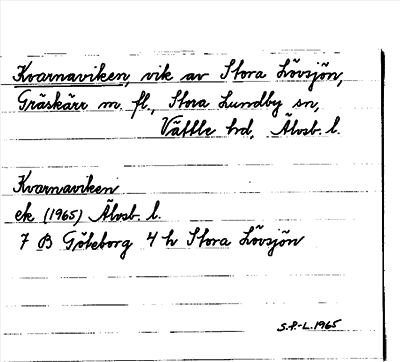 Kvarnaviken, vik av Stora Lövsjön,
Gräskärr m. fl., Stora Lundby sn,
Vättle hd, Älvsb. l.
Kvarnaviken
ek (1965) Älvsb. l.
7 B Göteborg 4 h Stora Lövsjön
S.P-L. 1965